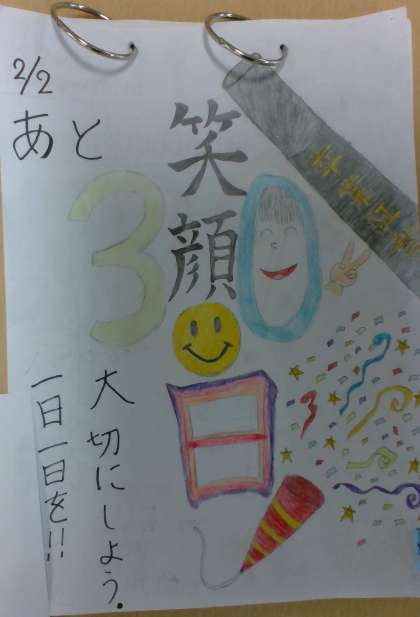 2/2
あと
30
日
笑顔
卒業証書
大切にしよう。
一日一日を!!